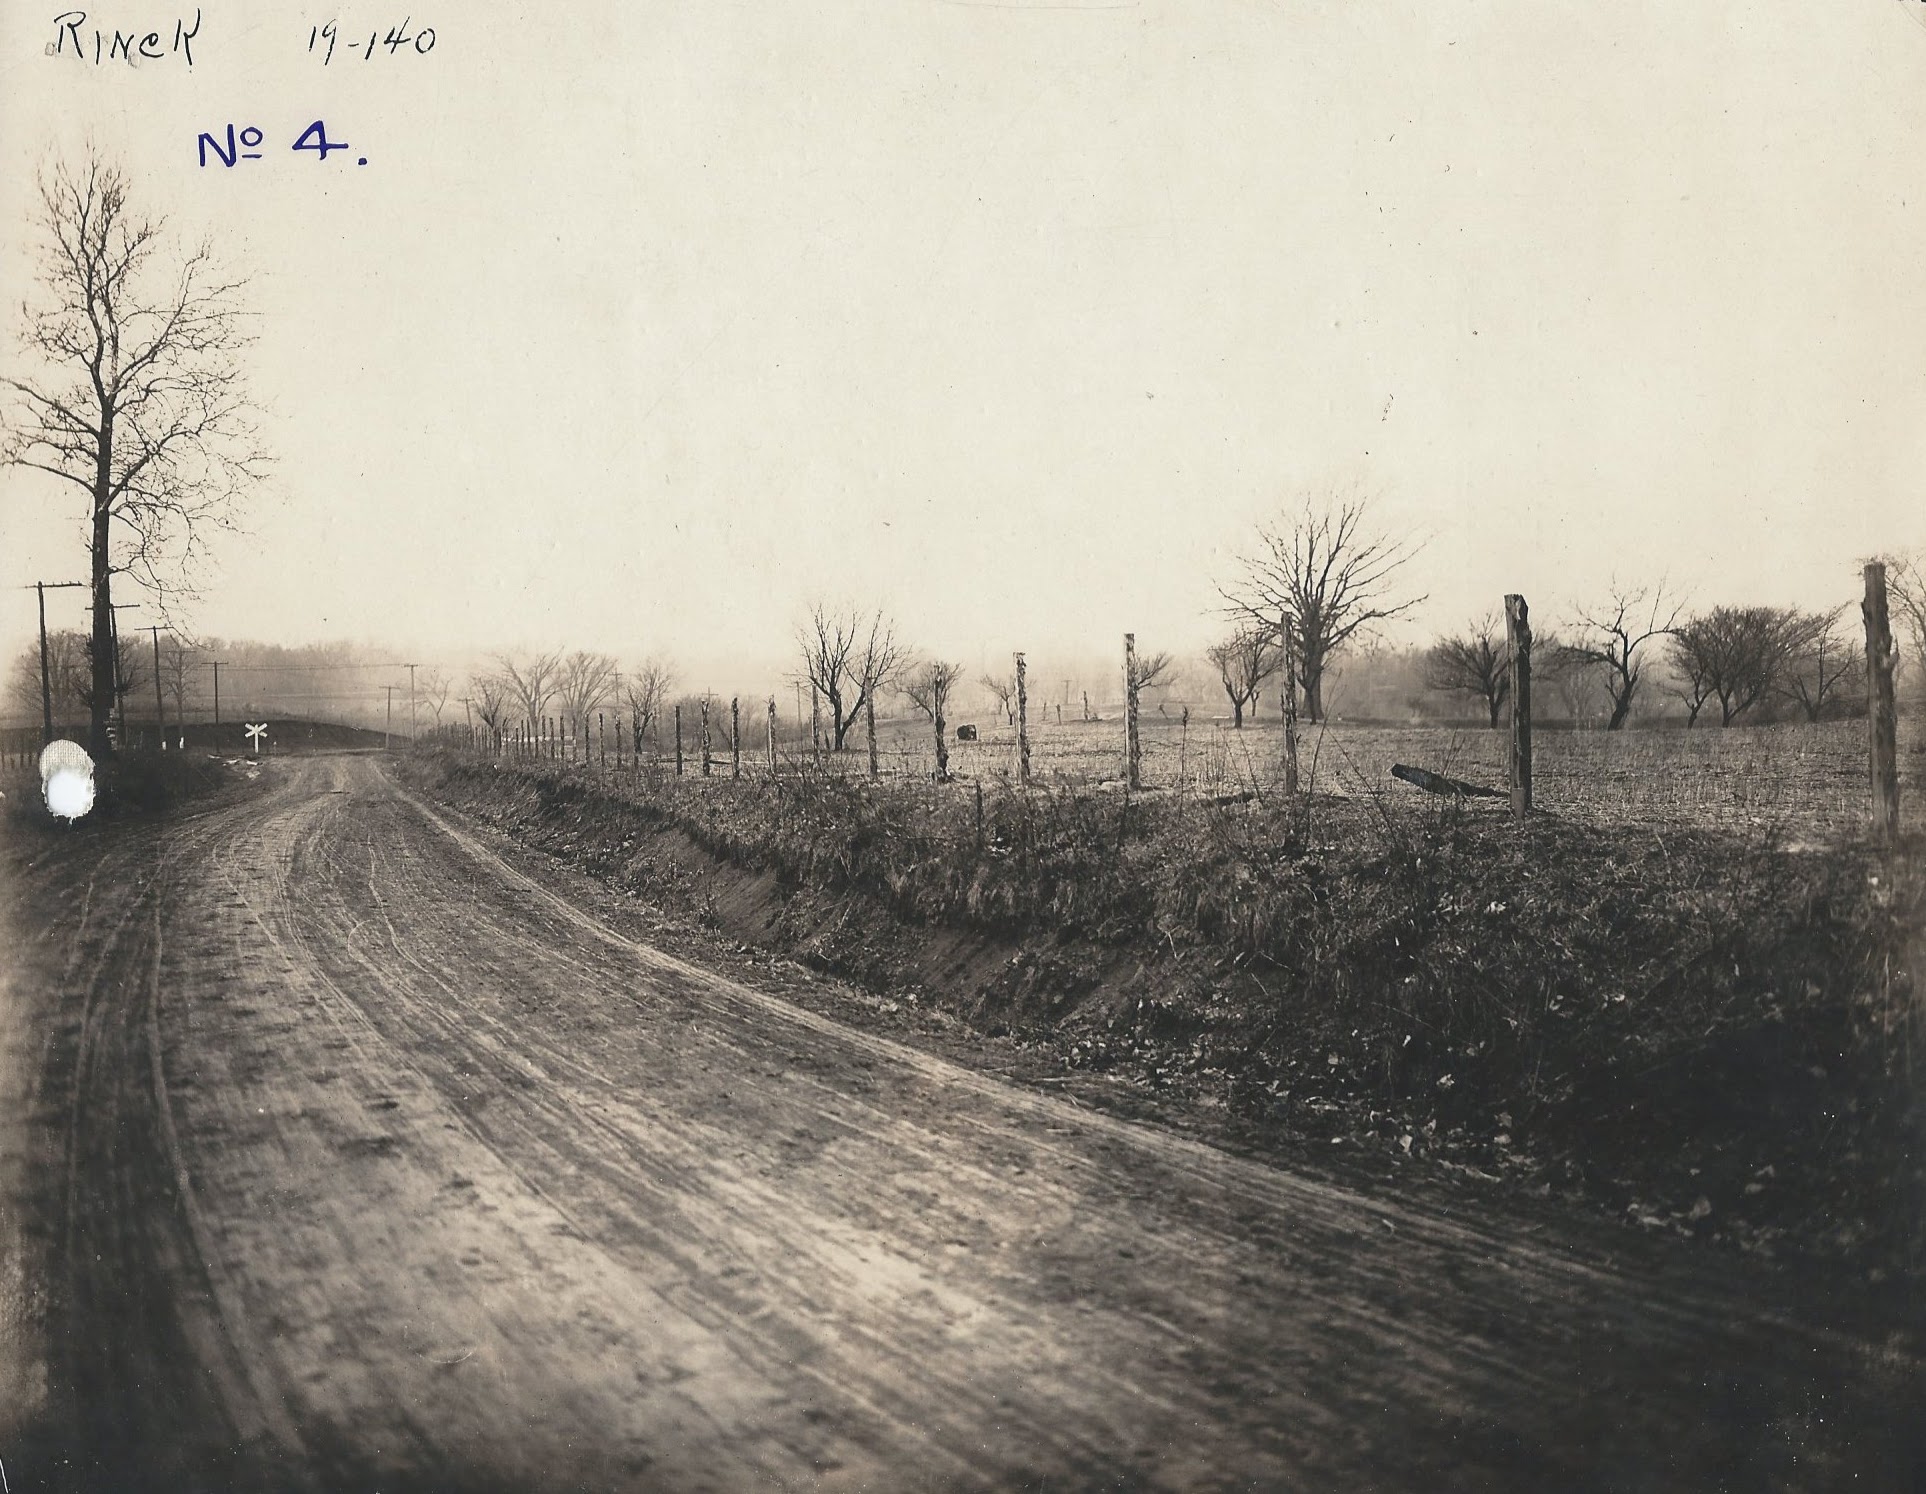 RINCK 19-140
Nº 4.